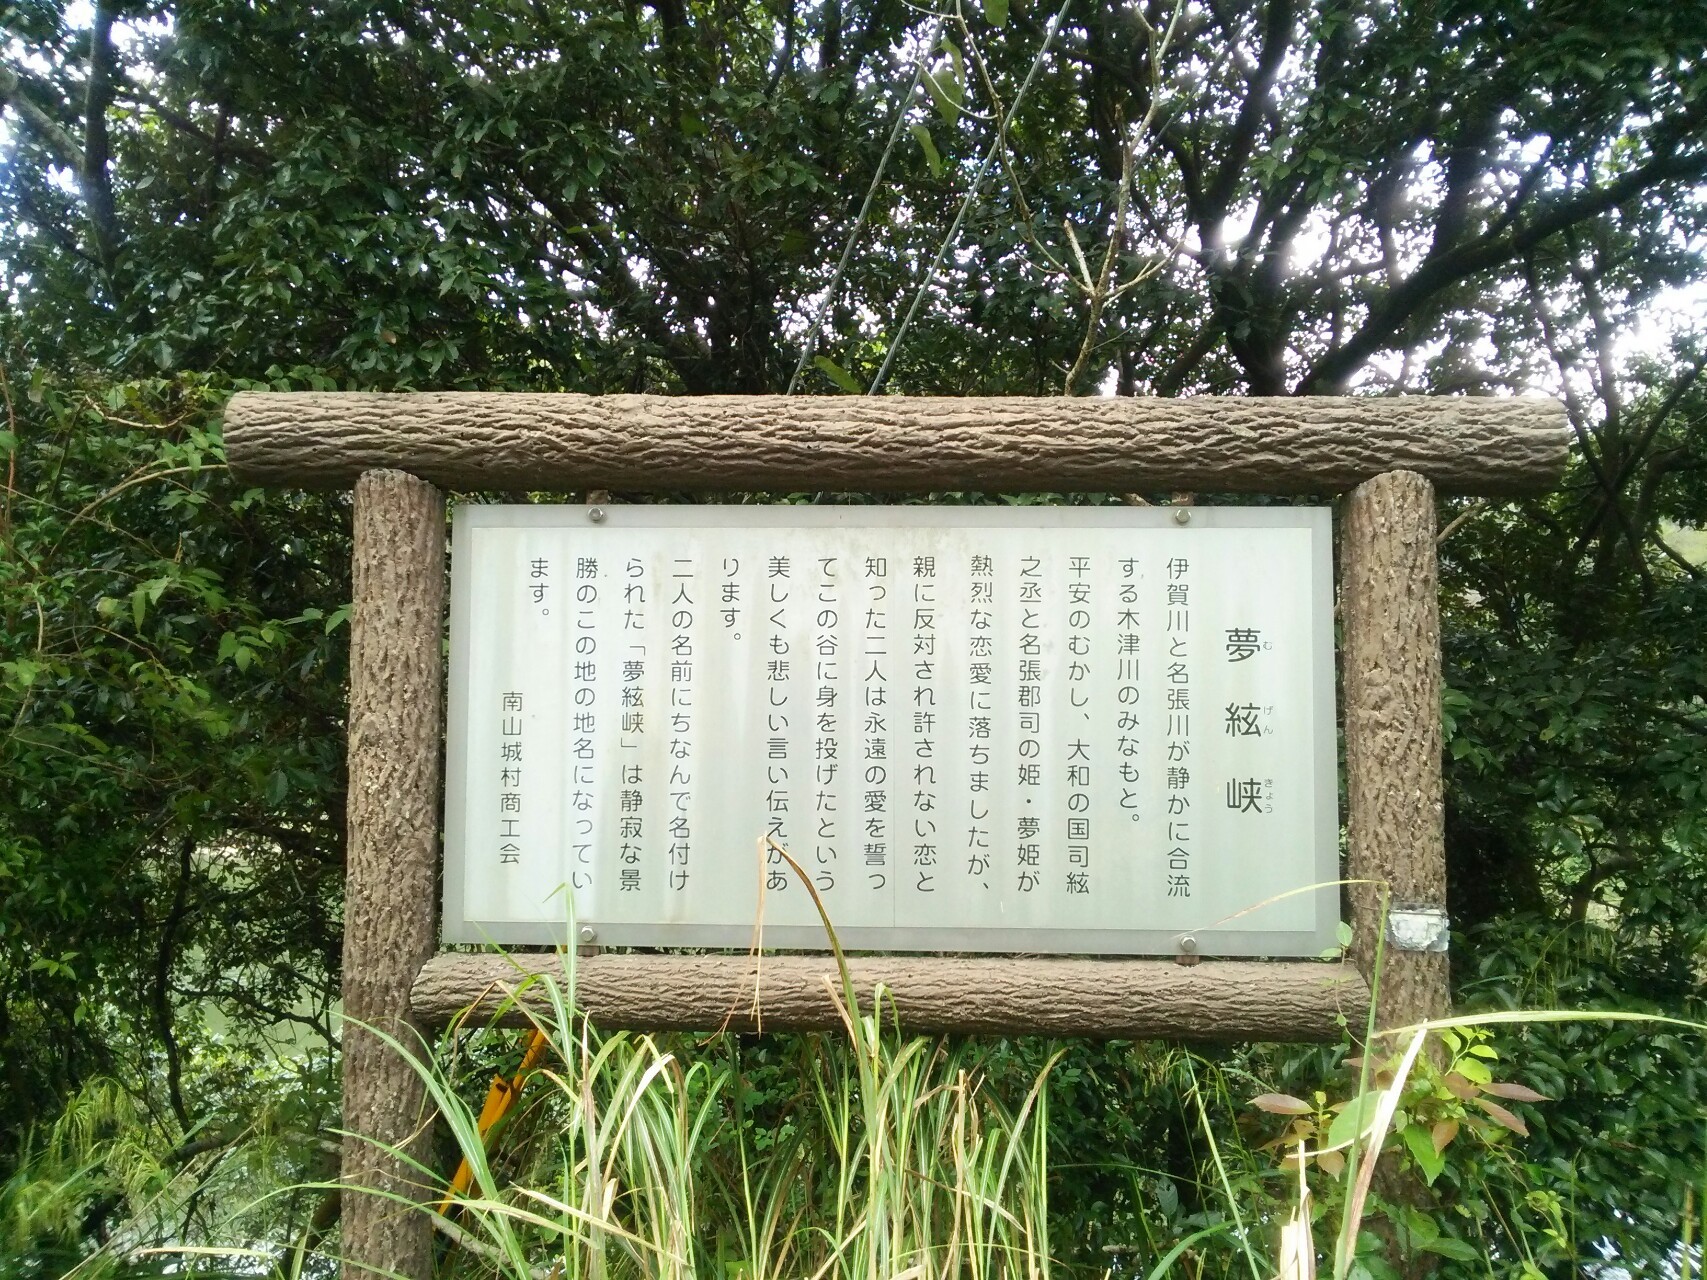 夢絃峡
むげんきょう
伊賀川と名張川が静かに合流
する木津川のみなもと。
平安のむかし、大和の国司絃
之丞と名張郡司の姫・夢姫が
熱烈な恋愛に落ちましたが、
親に反対され許されない恋と
知った二人は永遠の愛を誓っ
てこの谷に身を投げたという
美しくも悲しい言い伝えがあ
ります。
二人の名前にちなんで名付け
られた「夢絃峡」は静寂な景
勝のこの地の地名になってい
ます。
南山城村商工会